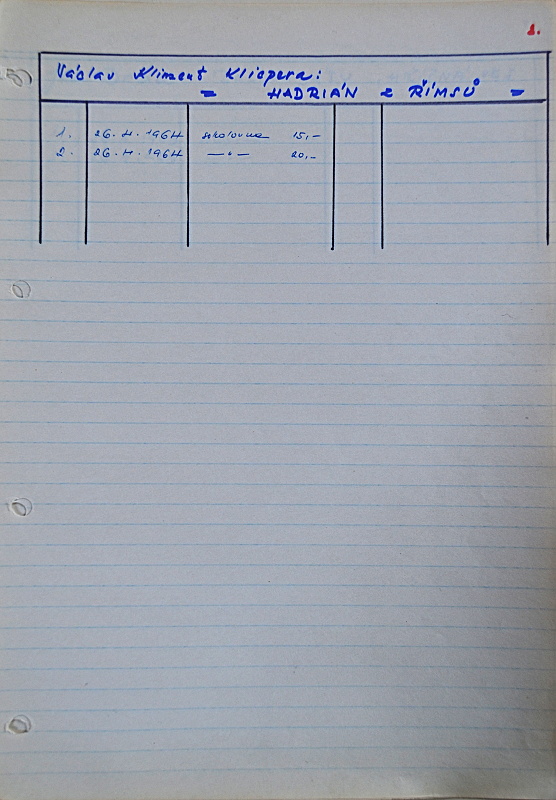 1.
Václav Kliment Klicpera:
= HADRIÁN z ŘÍMSŮ =
1. 26.4.1964 sokolovna 15,-
2. 26.4.1964 —"— 20,-